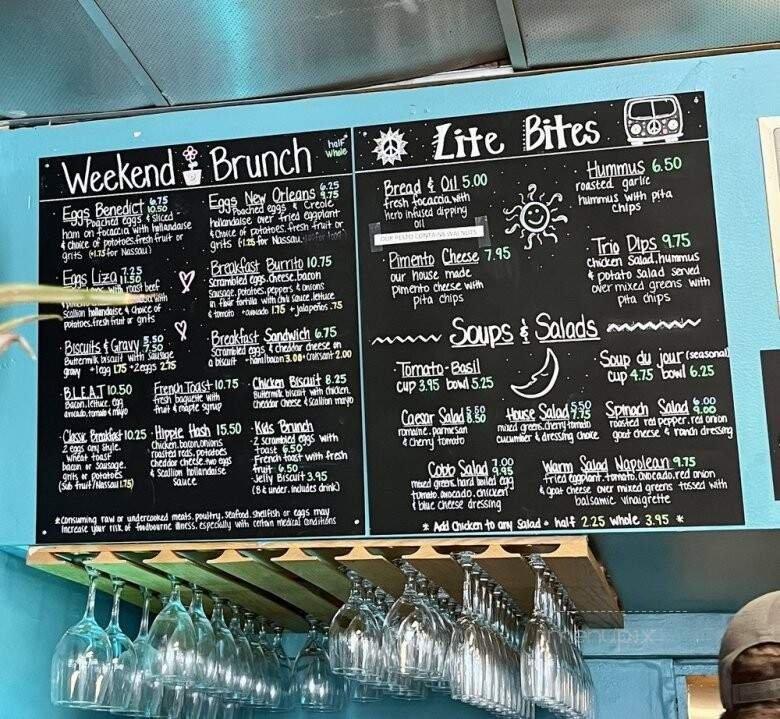 Weekend Brunch
half
whole
Eggs Benedict 6.75
10.50
Poached eggs & sliced
ham on focaccia with hollandaise
& choice of potatoes, fresh fruit or
grits (+1.75 for Nassau)
Eggs Liza 7.25
11.50
with roast beef
scallion hollandaise & choice of
potatoes, fresh fruit or grits
Biscuits & Gravy 5.50
7.50
Buttermilk biscuit with sausage
gravy +1 egg 1.75 +2 eggs 2.75
B.L.E.A.T 10.50
Bacon, lettuce, egg
avocado, tomato & mayo
Classic Breakfast 10.25
2 eggs any style,
wheat toast
bacon or sausage,
grits or potatoes
(Sub fruit/Nassau 1.75)
Eggs New Orleans 6.25
9.75
Poached eggs & Creole
hollandaise over fried eggplant
& choice of potatoes, fresh fruit or
grits (+1.75 for Nassau
Breakfast Burrito 10.75
scrambled eggs, cheese, bacon
sausage, potatoes, peppers & onions
in flour tortilla with chili sauce, lettuce
& tomato +avocado 1.75 +jalapeños .75
Breakfast Sandwich 6.75
Scrambled eggs & cheddar cheese on
a biscuit +ham/bacon 3.00 +croissant 2.00
French Toast 10.75
fresh baguette with
fruit & maple syrup
Chicken Biscuit 8.25
Buttermilk biscuit with chicken,
cheddar cheese & scallion mayo
Hippie Hash 15.50
Chicken, bacon, onions
roasted reds, potatoes
cheddar cheese, two eggs
& scallion hollandaise
sauce
Kids Brunch
-2 scrambled eggs with
toast 6.50
-French toast with fresh
fruit 6.50
-Jelly Biscuit 3.95
(8 & under, includes drink)
*Consuming raw or undercooked meats, poultry, seafood, shellfish or eggs may
increase your risk of foodbourne illness, especially with certain medical conditions
Lite Bites
Bread & Oil 5.00
fresh focaccia with
herb infused dipping
oil
OUR PESTO CONTAINS WALNUTS
Pimento Cheese 7.95
our house made
pimento cheese with
pita chips
Hummus 6.50
roasted garlic
hummus with pita
chips
Trio Dips 9.75
chicken salad, hummus
& potato salad served
over mixed greens with
pita chips
Soups & Salads
Tomato-Basil
cup 3.95 bowl 5.25
Soup du jour (seasonal)
cup 4.75 bowl 6.25
Caesar Salad 5.50
8.50
romaine, parmesan
& cherry tomato
House Salad 5.50
7.75
mixed greens, cherry tomato
cucumber & dressing choice
Spinach Salad 6.00
9.00
roasted red pepper, red onion
goat cheese & ranch dressing
Cobb Salad 7.00
9.95
mixed greens, hard boiled egg
tomato, avocado, chicken
& blue cheese dressing
Warm Salad Napolean 9.75
fried eggplant, tomato, avocado, red onion
& goat cheese over mixed greens tossed with
balsamic vinaigrette
* Add Chicken to any Salad - half 2.25 whole 3.95 *
menupix